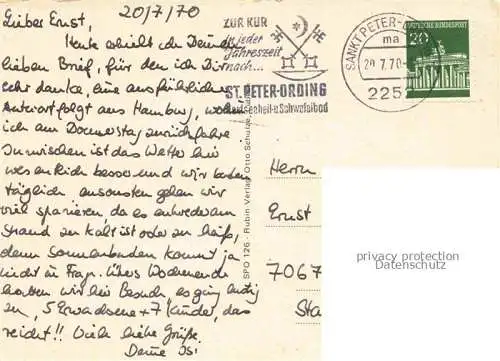 20/7/70
Lieber Ernst,
Heute erhielt ich Deinen
lieben Brief, für den ich Dir
sehr danke, eine ausführliche
Antwort folgt aus Hamburg, wohin
ich am Donnerstag zurückfahre
Inzwischen ist das Wetter hier
wesentlich besser und wir baden
täglich ansonsten gehen wir
viel spazieren, da es entweder am
Strand zu kalt ist oder zu heiß,
denn Sonnenbaden kommt ja
nicht in Frage. Übers Wochenende
hatten wir hier Besuch, es ging lustig
zu, 5 Erwachsene + 7 Kinder, das
reicht!! Viele liebe Grüße.
Deine
ZUR KUR
in jeder
Jahreszeit
nach...
ST. PETER-ORDING
Nordseeheil-u. Schwefelbad
SANKT PETER-
ma
20.7.70
225
20
DEUTSCHE BUNDESPOST
SPO 126 - Rubin Verlag Otto Schulze,
Herrn
Ernst
7067
privacy protection
Datenschutz